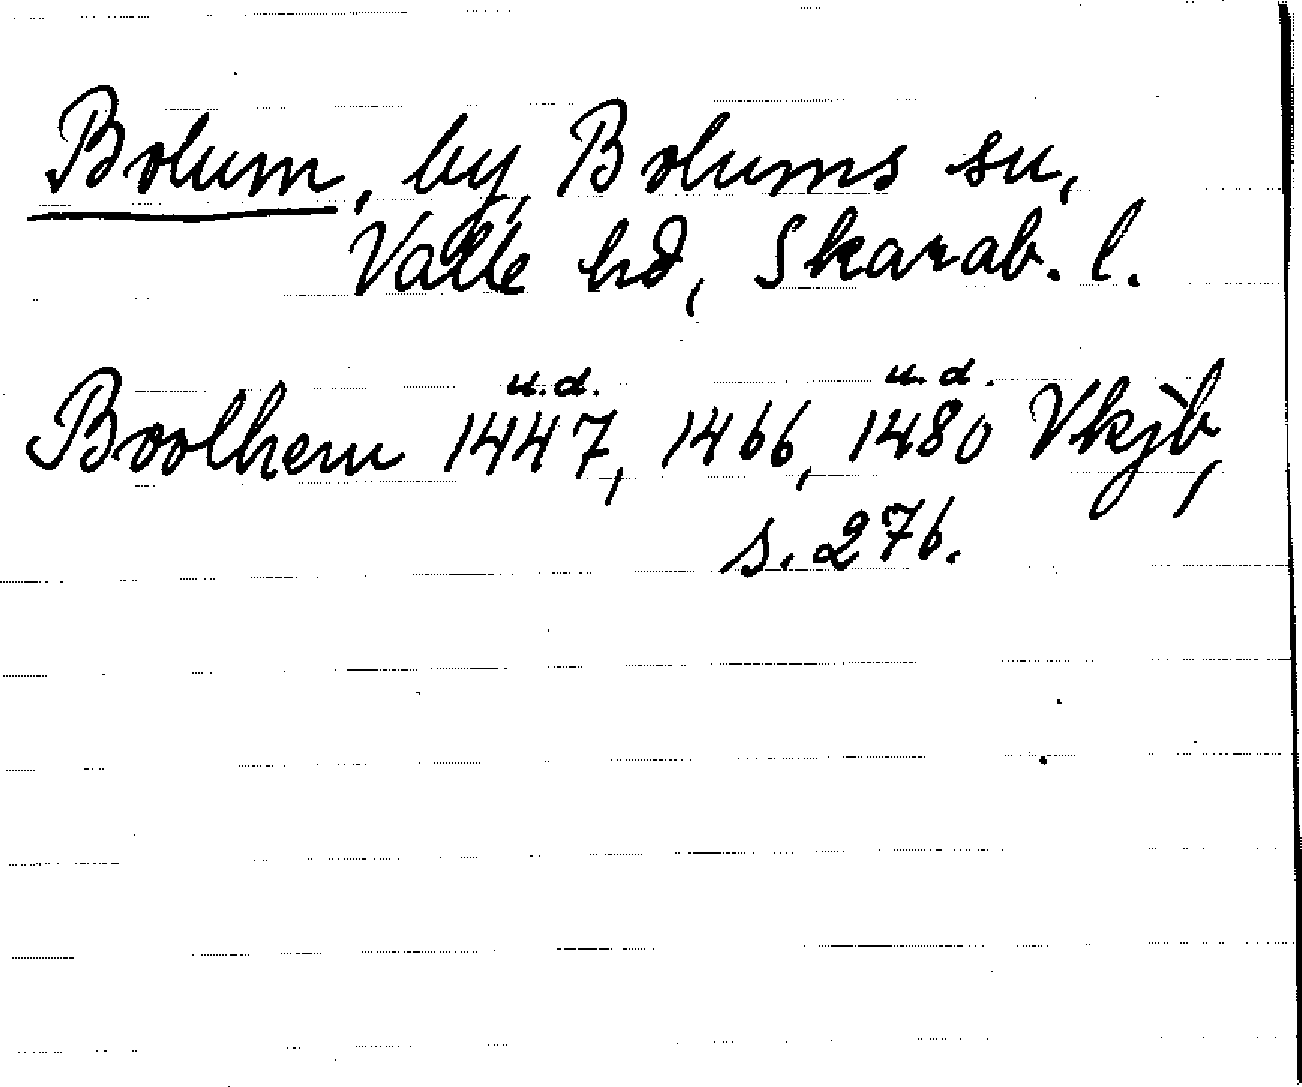 Bolum, by, Bolums sn,
Valle hd, Skarab. l.
u.d. u.d.
Boolhem 1447, 1466, 1480 Vkjb,
s. 276.